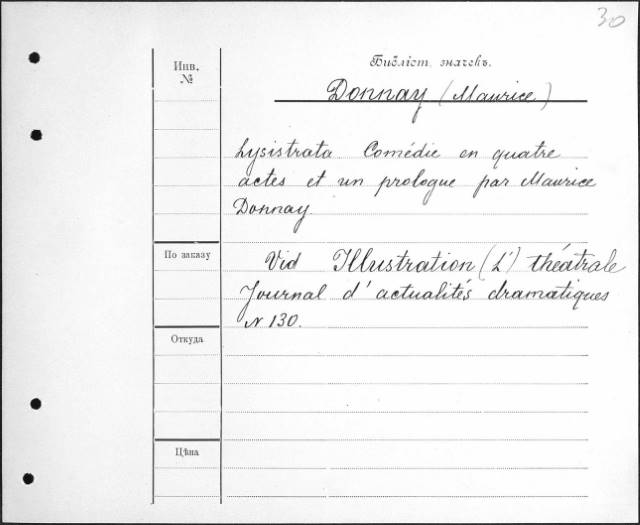 30
Инв.
№
Библіот. значекъ.
Donnay (Maurice)
Lysistrata Comédie en quatre
actes et un prologue par Maurice
Donnay
По заказу
Vid Illustration (L') théâtrale
Journal d'actualités dramatiques
N 130.
Откуда
Цѣна